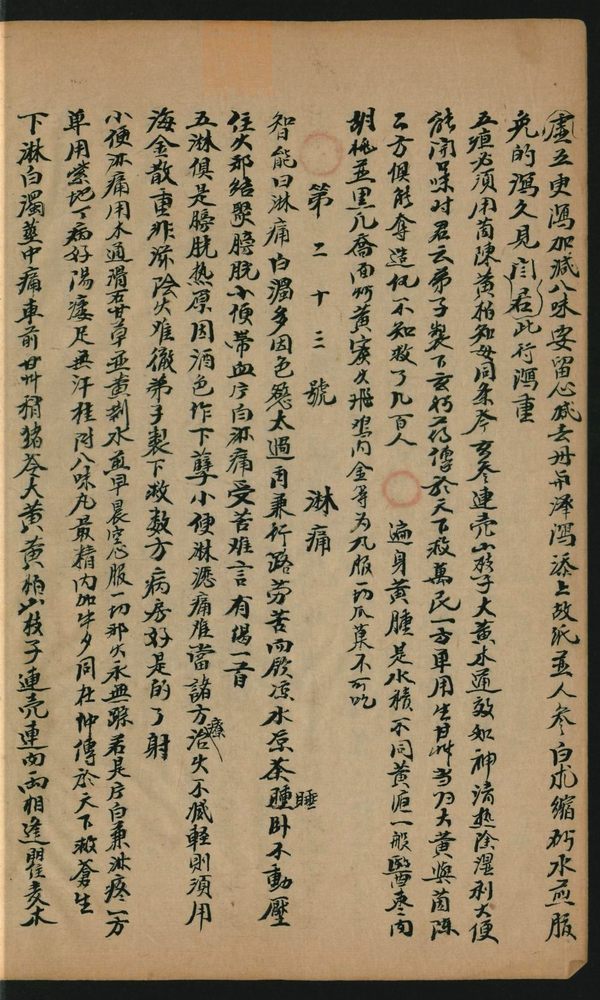 虛五更瀉加減八味要留心減去丹而澤瀉添上故紙並人參白朮縮砂水煎服
免的瀉久見閻君此行瀉重
五疸必須用茵陳黃柏知母同条芩玄參連壳山枝子大黃木通效如神清熱除濕利大便
能開味对君云弟子製下玄妙方傳於天下救萬民一方單用生甘艸当归大黃與茵陳
二方俱能奪造化不知救了几百人 遍身黃腫是水積不同黃疸一般醫枣肉
胡桃並黑凡喬面炒黃寒久飛鸡內金等為丸服一切瓜菓不可吃
第二十三號 淋痛
智能曰淋痛白濁多因色慾太過再兼行路勞苦而飲凉水凉茶睡卧不動壓
住火邪結聚膀胱小便帶血片白淋痛受苦难言有揭一首
五淋俱是膀胱热原因酒色作下孽小便淋瀝痛难當諸方治療火不減輕則須用
海金散重非滌陰火难徹弟子製下救数方病房好是的了射
小便淋痛用木通滑石甘草並黃荆水煎早晨空心服一切邪火永無踪若是片白兼淋疼一方
單用紫地丁病好湯瘘足無汗桂附八味丸最精內加牛夕同杜仲傳於天下救蒼生
下淋白濁莖中痛車前甘艸稍猪苓大黃黃柏山枝子連壳連肉両相逢瞿麦木